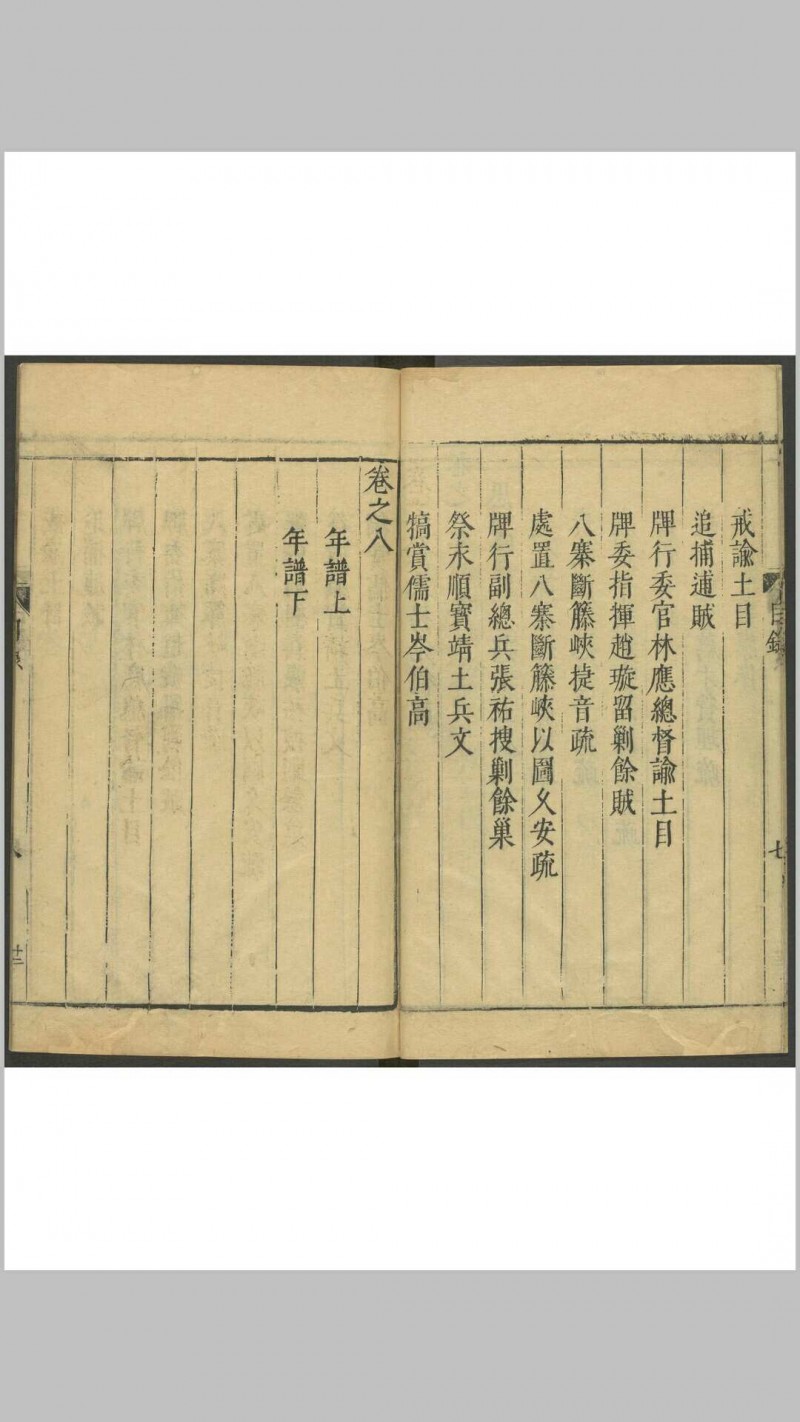 戒諭土目
追捕逋賊
牌行委官林應總督諭土目
牌委指揮趙璇留剿餘賊
八寨斷籐峽捷音疏
處置八寨斷籐峽以圖久安疏
牌行副總兵張祐搜剿餘巢
祭永順寶靖土兵文
犒賞儒士岑伯高
卷之八
年譜上
年譜下
目錄
七
十二